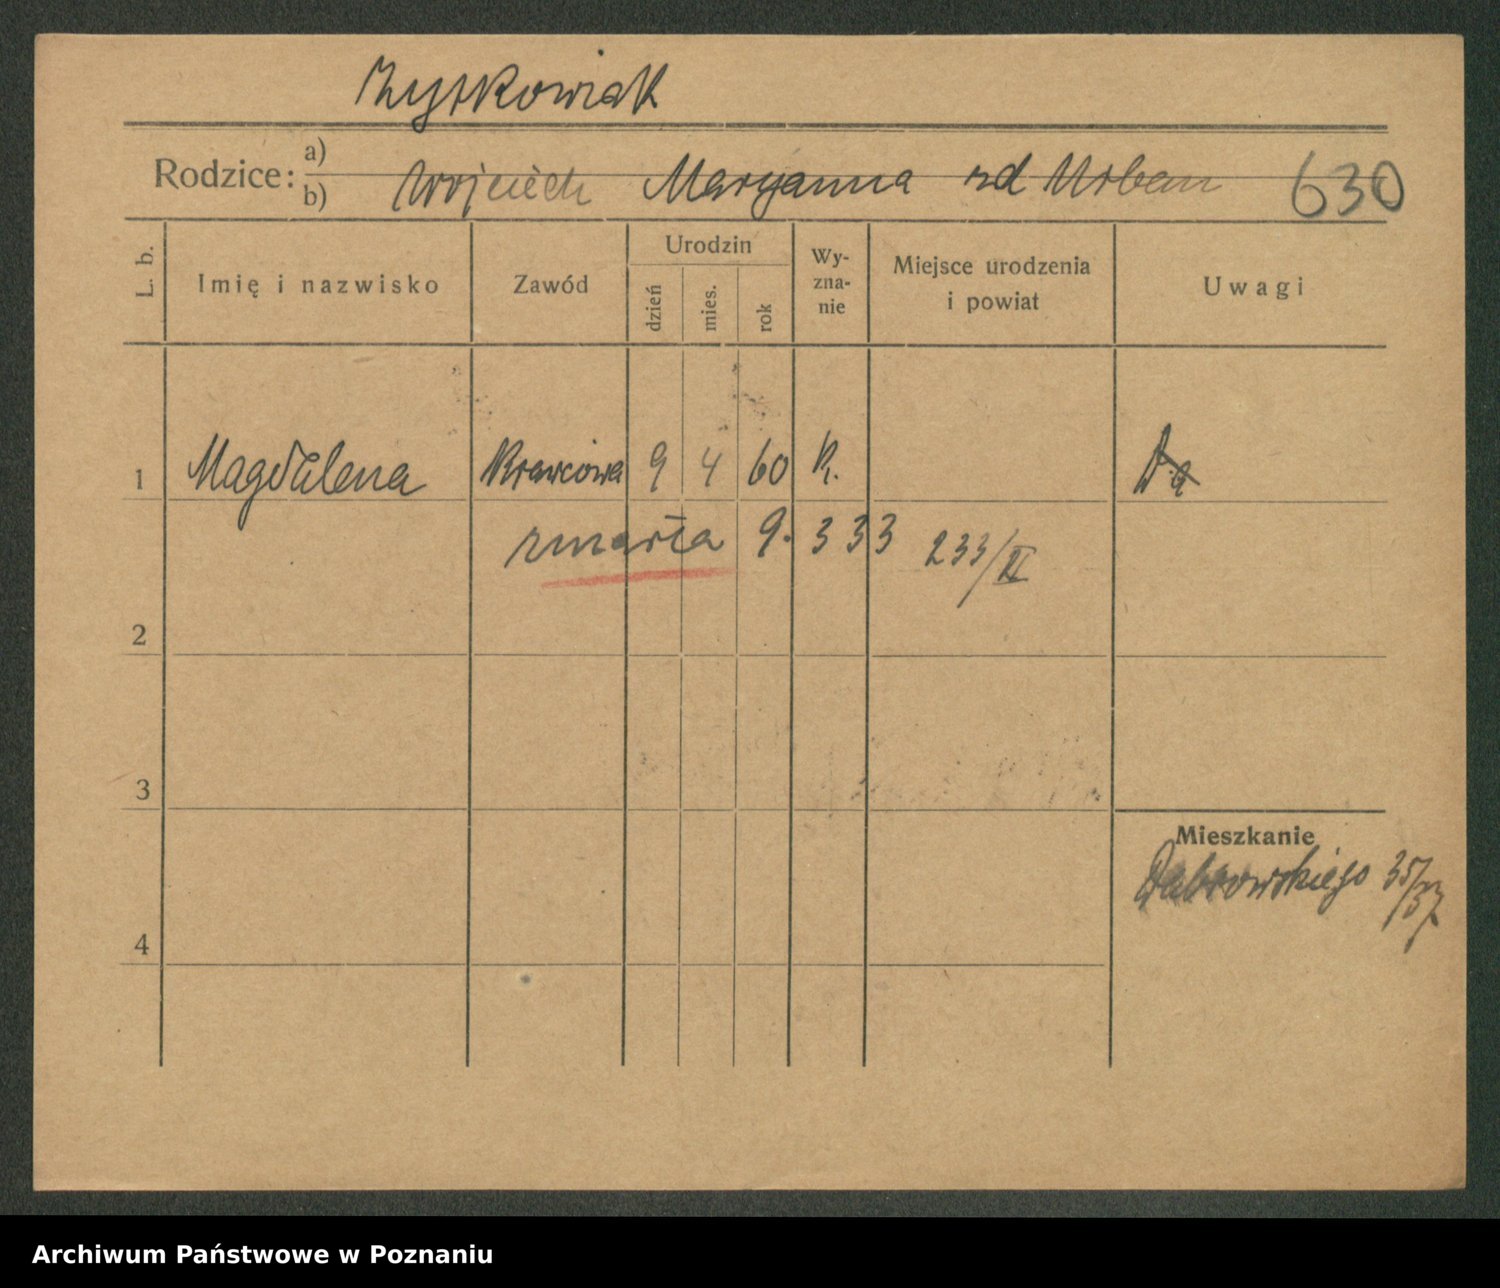 Żyrkowiak
Rodzice: a)
b) Wojciech Maryanna zd Urban 630
L. b. Imię i nazwisko Zawód Urodzin dzień mies. rok Wy-zna-nie Miejsce urodzenia i powiat Uwagi
1 Magdalena Krawcowa 9 4 60 K.
zmarła 9. 3 33 233/II
2
3
Mieszkanie
Dąbrowskiego 35/37
4
Archiwum Państwowe w Poznaniu